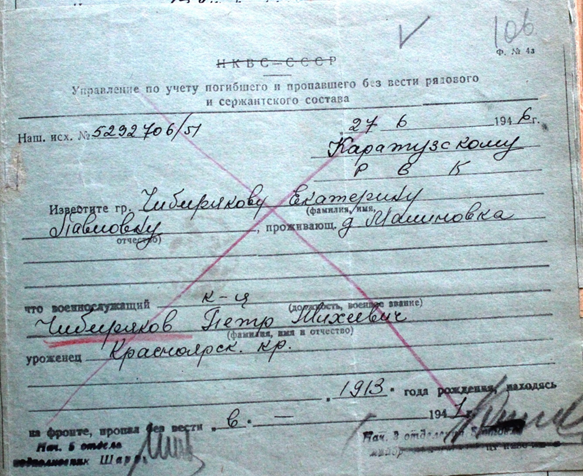 106
НКВС—СССР
Ф. № 4а
Управление по учету погибшего и пропавшего без вести рядового
и сержантского состава
Наш. исх. № 5292706/51 27 6 1946г.
Каратузскому
Р В К
Известите гр. Чибирякову Екатерину
(фамилия, имя,
Павловну, проживающ. д Малиновка
отчество)
что военнослужащий к-ц
(должность, военное звание)
Чибиряков Петр Михеевич
(фамилия, имя и отчество)
уроженец Красноярск. кр.
1913 года рождения, находясь
на фронте, пропал без вести в. — 1941г.
Нач. 5 отдела
подполковник
Нач. 3 отделения
майор